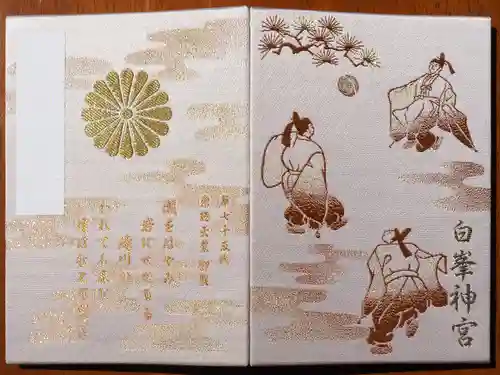 白峯神宮
第七十五代
崇徳天皇 御製
瀬をはやみ
岩にせかるる
瀧川の
われても末に